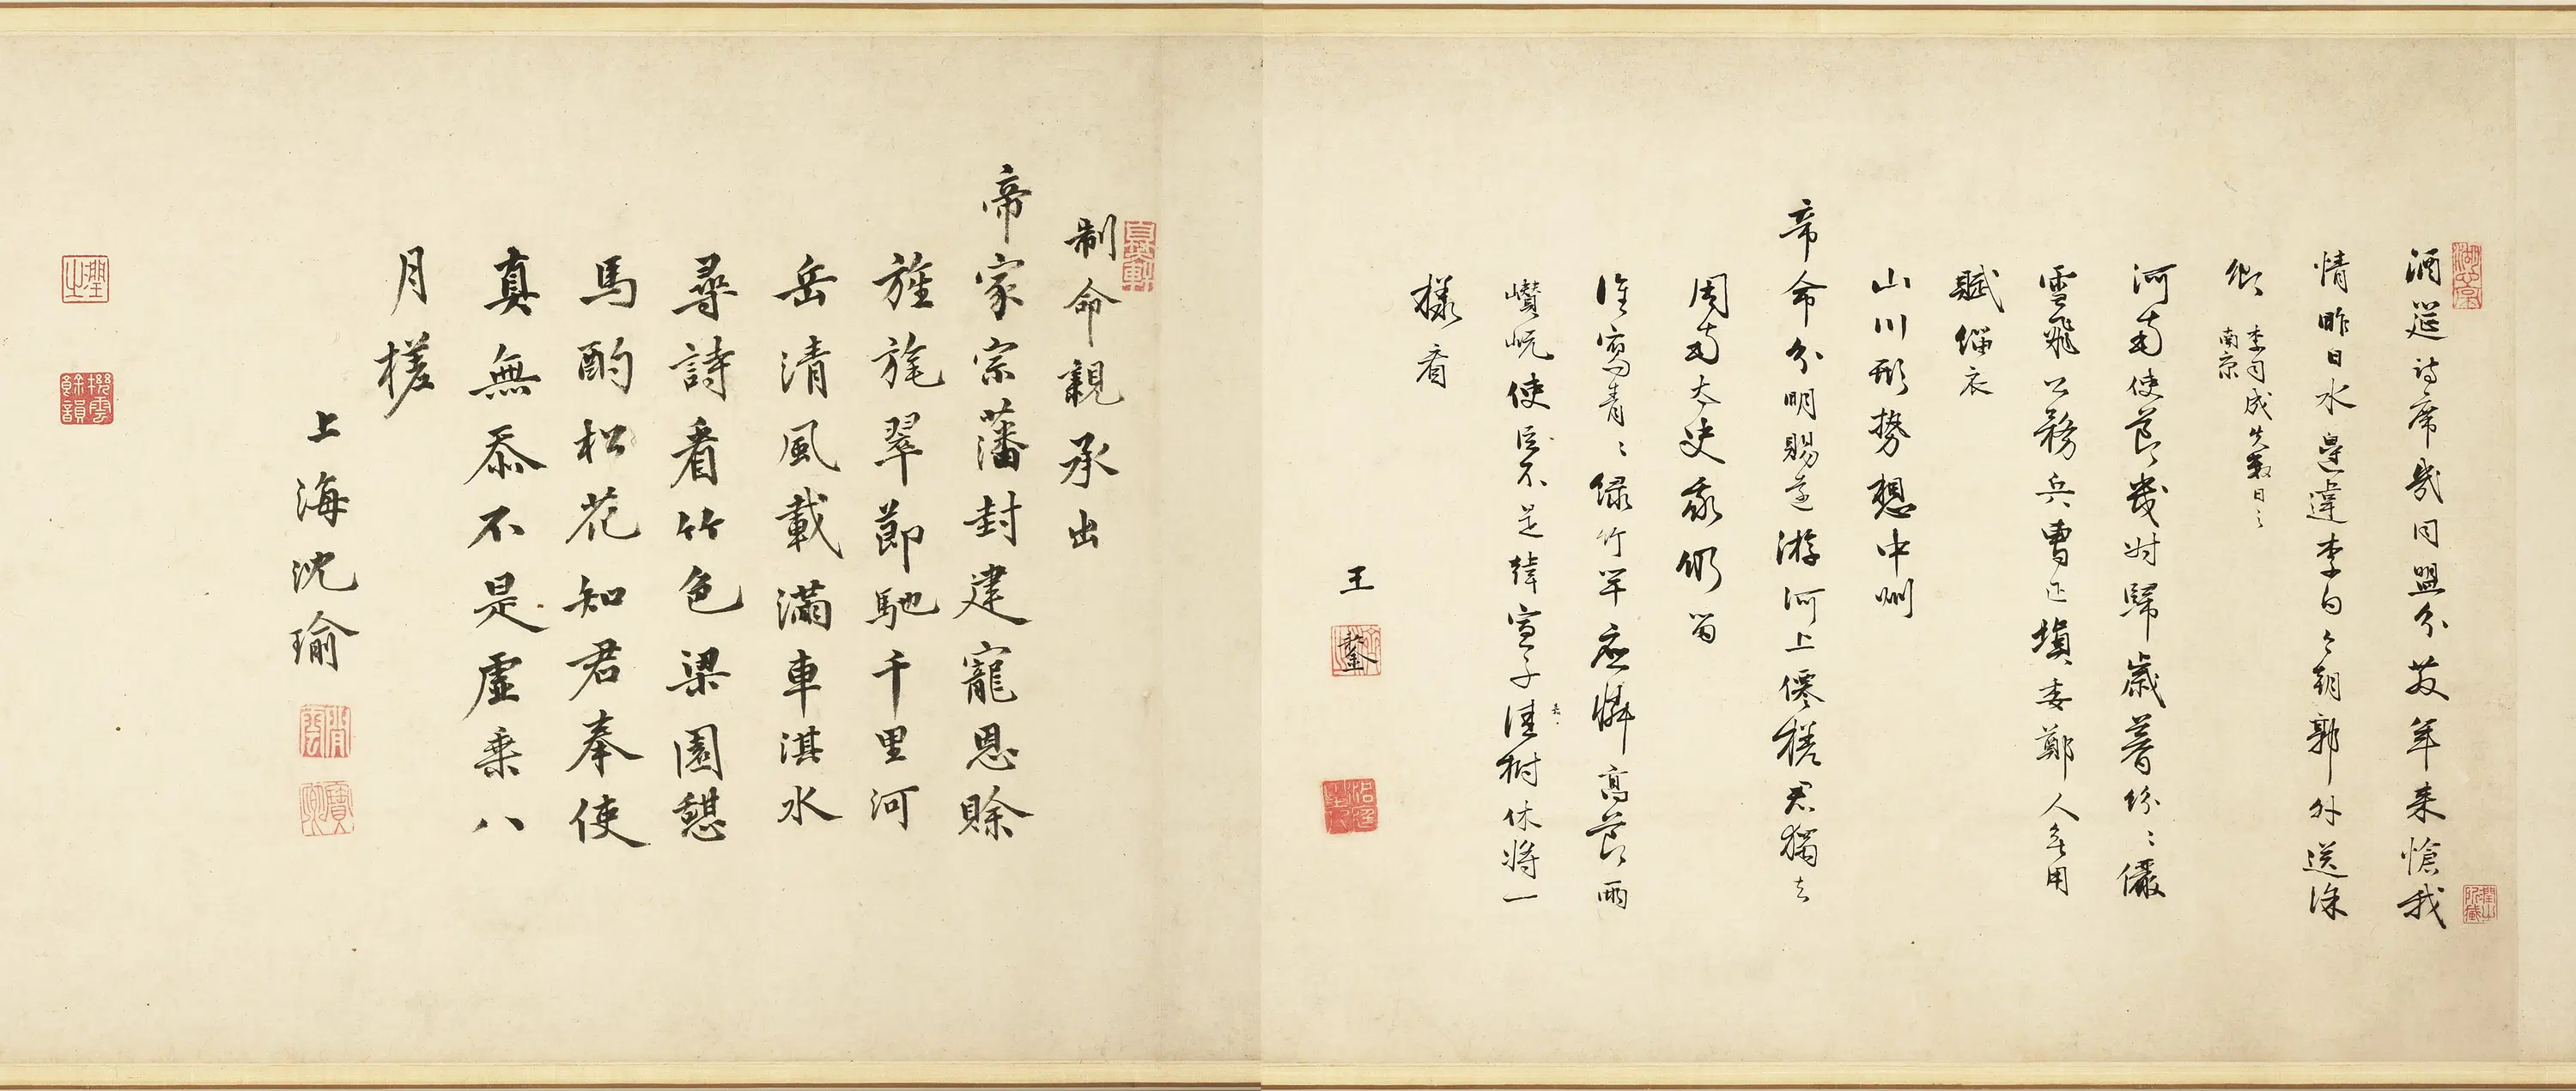 酒筵詩席幾同盟分芰年来愴我
情昨日水邊違李白今朝郭外送徐
卿
李司成先數日之
南京
河南使節幾時歸歲暮紛紛儼
雪飛公務兵曹正填委鄭人無用
賦緇衣
山川形勢想中州
帝命分明賜遠游河上僊槎君獨去
周南太史我仍留
淮寫青〻綠竹竿應憐高節兩
巑岏使臣不是韓宣子佳樹休將一
樣看
王
鏊
制命親承出
帝家宗藩封建寵恩賒
旌旄翠節馳千里河
岳清風載滿車淇水
尋詩看竹色梁園憇
馬酌松花知君奉使
真無忝不是虛乘八
月槎
上海沈瑜